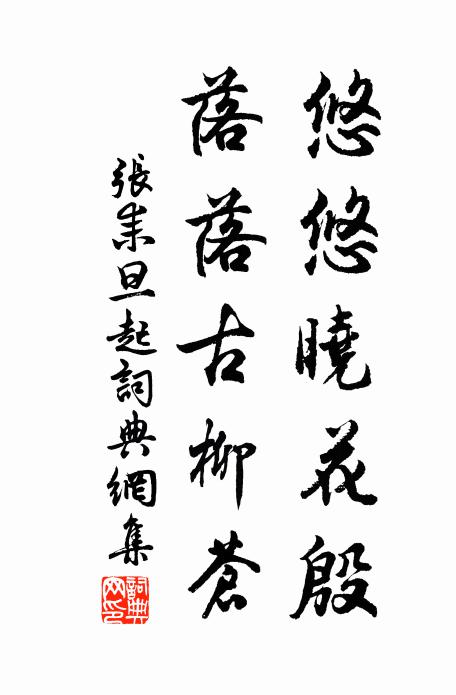 悠悠曉花殷
落落古柳蒼
張耒旦起詞典網集
詞典網印